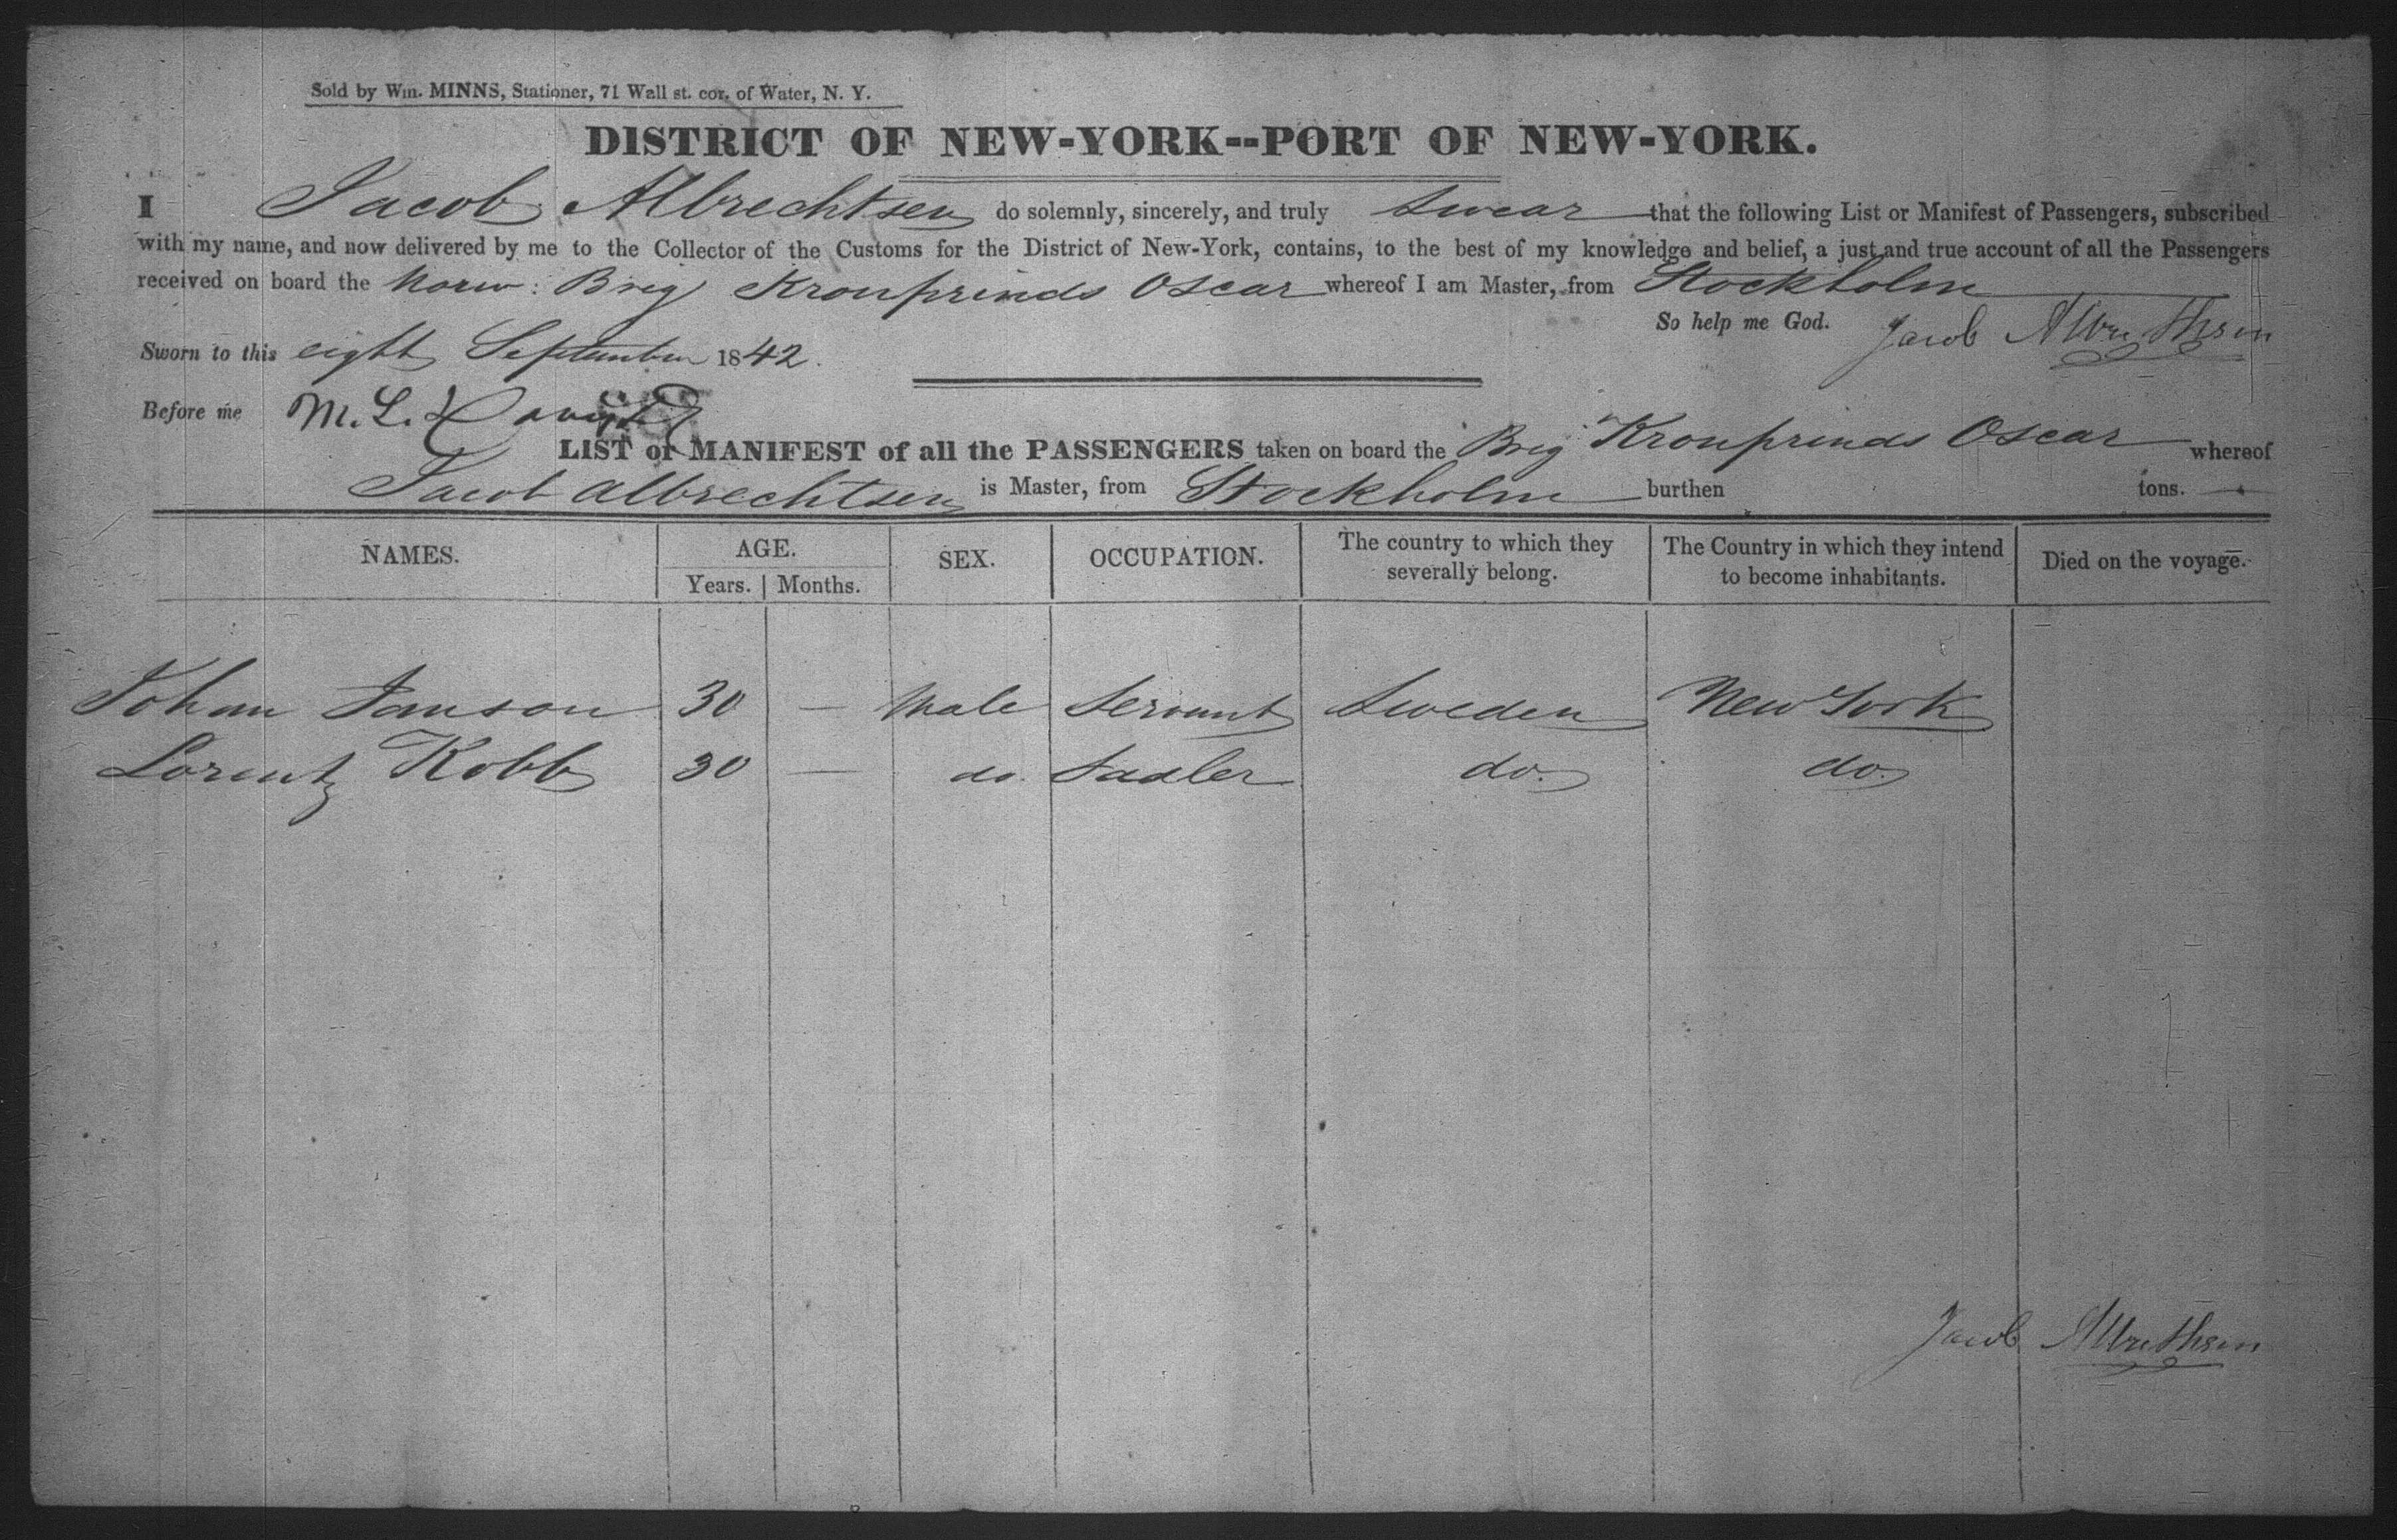 Sold by Wm. MINNS, Stationer, 71 Wall st. cor. of Water, N. Y.
DISTRICT OF NEW-YORK--PORT OF NEW-YORK.
I Jacob Albrechtsen do solemnly, sincerely, and truly swear that the following List or Manifest of Passengers, subscribed
with my name, and now delivered by me to the Collector of the Customs for the District of New-York, contains, to the best of my knowledge and belief, a just and true account of all the Passengers
received on board the Norw: Brig Kronprinds Oscar whereof I am Master, from Stockholm
So help me God. Jacob Albrethsen
Sworn to this eight September 1842.
Before me M. L. Davis
LIST or MANIFEST of all the PASSENGERS taken on board the Brig Kronprinds Oscar whereof
Jacob Albrechtsen is Master, from Stockholm burthen tons.
NAMES. AGE. SEX. OCCUPATION. The country to which they severally belong. The Country in which they intend to become inhabitants. Died on the voyage.
Years. Months.
Johan Janson 30 — Male Servant Sweden New York
Lorentz Kobb 30 — do. Sadler do. do.
Jacob Albrethsen